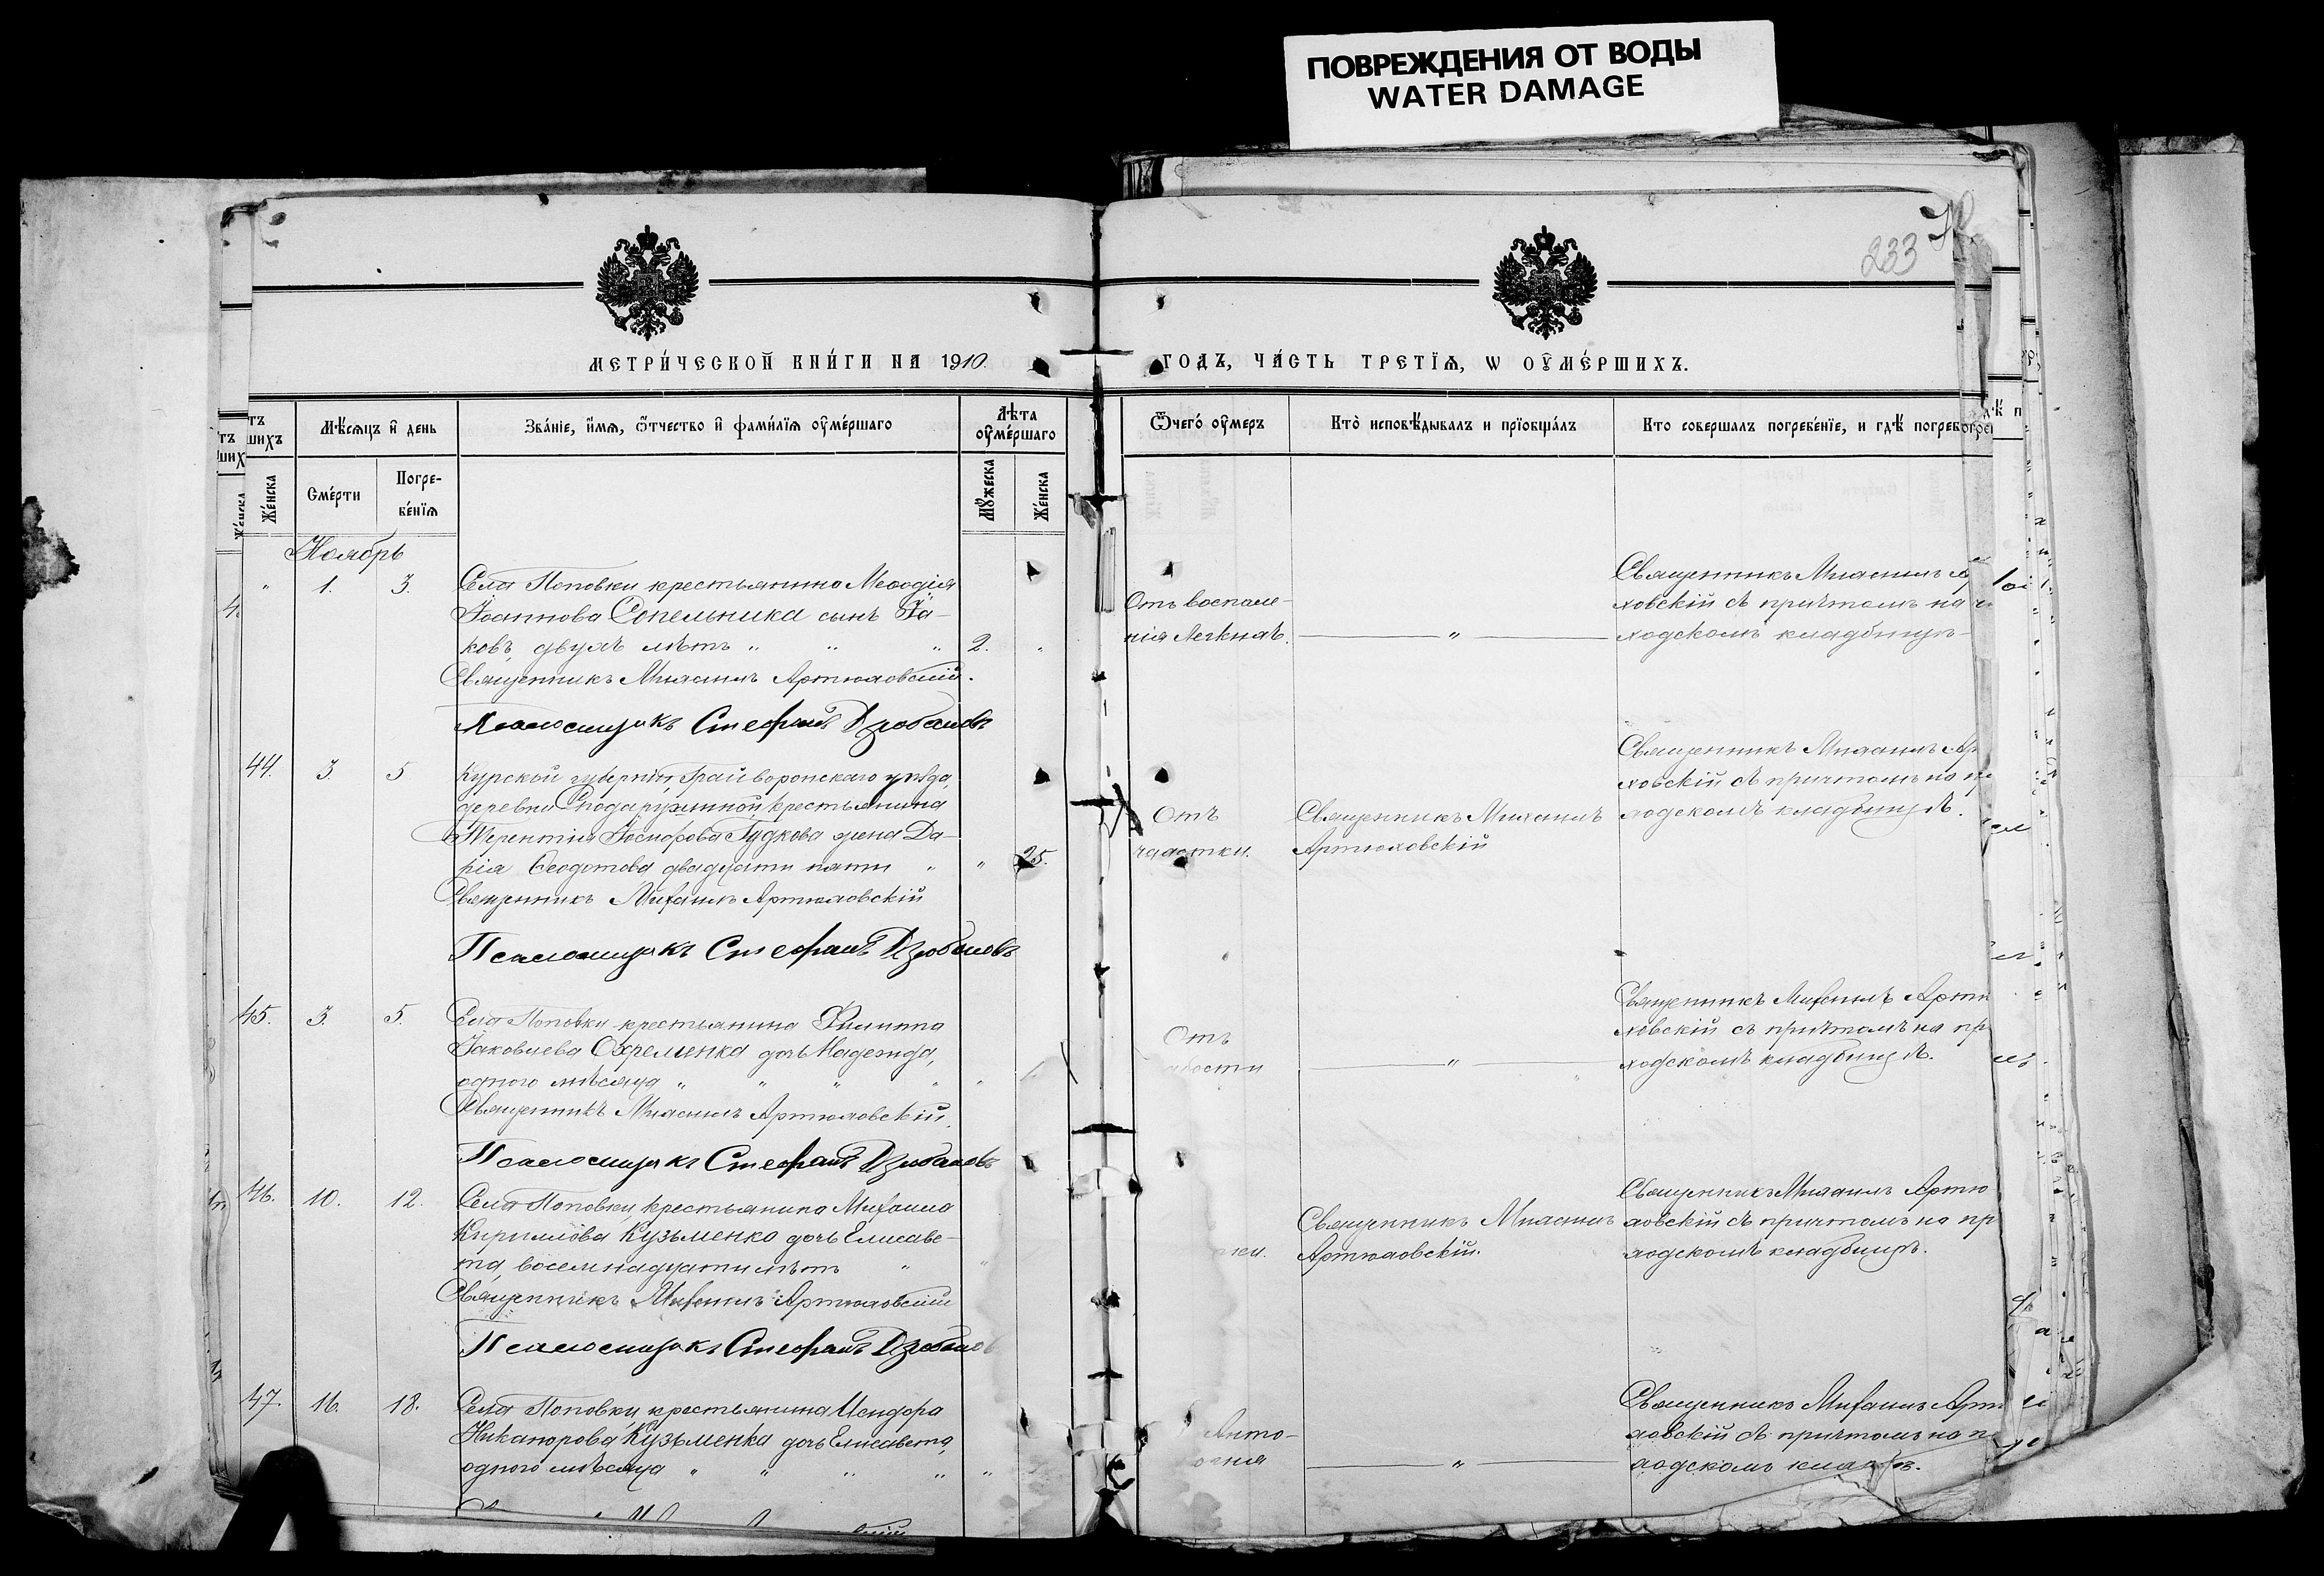 ПОВРЕЖДЕНИЯ ОТ ВОДЫ
WATER DAMAGE
233
МЕТРИ́ЧЕСКОЙ КНИ́ГИ НА 1910.
ГОДЪ, ЧА́СТЬ ТРЕТЇѦ, Ѡ ОУМЕ́РШИХЪ.
Мѣ́сѧцъ и҆ день
Зва́нїе, и҆́мѧ, ѻ҆́тчество и҆ фамилїѧ оумершаго
Лѣта оумершаго
Ѿчего́ оумеръ
Кто̀ исповѣ́дывалъ и прїобща́лъ
Кто совершалъ погребе́нїе, и гдѣ̀
Же́нска
Сме́рти
Погре-
бе́нїѧ
Мꙋ́жеска
Же́нска
Ноябрь
" 1. 3. Села Поповки крестьянина Меѳодія
Іоаннова Сопельника сынъ Іа-
ковъ, двухъ лѣтъ " " " 2. "
Священникъ Михаилъ Артюховскій.
Псаломщикъ Стефанъ Дзюбановъ
Отъ воспале-
нія легкихъ. "
Священникъ Михаилъ
ховскій съ причтомъ на
ходскомъ кладбищѣ
44. 3. 5 Курской губерніи, Грайворонскаго уѣзда,
деревни крестьянина
Терентія Іосифова Гудкова жена Да-
рія Ѳеодотова двадцати пяти " " 25.
Священникъ Михаилъ Артюховскій
Псаломщикъ Стефанъ Дзюбановъ
Отъ
чахотки.
Священникъ Михаилъ
Артюховскій
Священникъ Михаилъ Ар
ховскій съ причтомъ на
ходскомъ кладбищѣ.
45. 3. 5. Села Поповки крестьянина Филиппа
Іаковлева Охрeменка дочь Надежда,
одного мѣсяца " " " " "
Священникъ Михаилъ Артюховскій.
Псаломщикъ Стефанъ Дзюбановъ
Отъ
"
Священникъ Михаилъ Артю
ховскій съ причтомъ на пр
ходскомъ кладбищѣ.
46. 10. 12. Села Поповки, крестьянина Михаила
Кириллова Кузьменко дочь Елисаве-
та, восемнадцати лѣтъ " "
Священникъ Михаилъ Артюховскій
Псаломщикъ Стефанъ Дзюбанов
Священникъ Михаилъ
Артюховскій.
Священникъ Михаилъ Артю
ховскій съ причтомъ на пр
ходскомъ кладбищѣ.
47. 16. 18. Села Поповки, крестьянина Исидора
Никанорова Кузьменка дочь Елисавета,
одного мѣсяца " " " " "
"
Священникъ Михаилъ Арт
ховскій съ причтомъ на п
ходскомъ